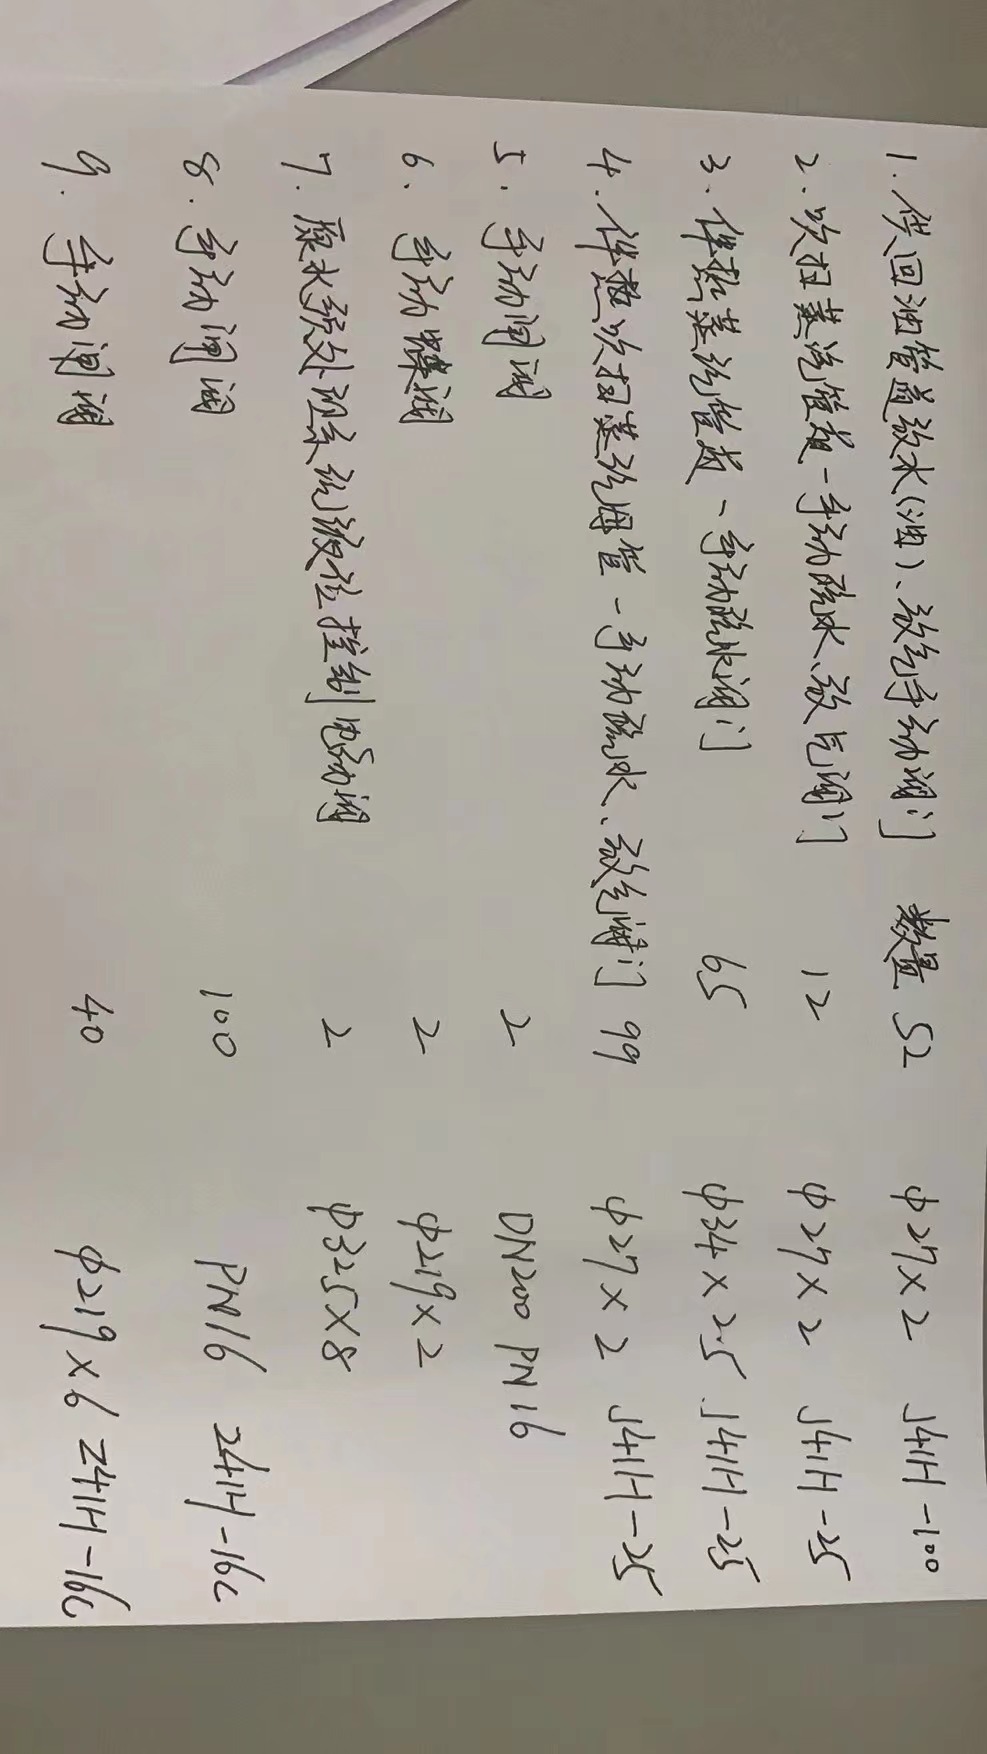 1. 供回油管道放水(油)、放气手动阀门 数量 52 φ27×2 J41H-100
2. 吹扫蒸汽管道-手动疏水、放气阀门 12 φ27×2 J41H-25
3. 伴热蒸汽管道-手动疏水阀门 65 φ34×2.5 J41H-25
4. 伴热吹扫蒸汽母管-手动疏水、放气阀门 99 φ27×2 J41H-25
5. 手动闸阀 2 DN200 PN16
6. 手动蝶阀 2 φ219×2
7. 原水预处理系统液位控制电动阀 2 φ325×8
8. 手动闸阀 100 PN16 Z41H-16C
9. 手动闸阀 40 φ219×6 Z41H-16C